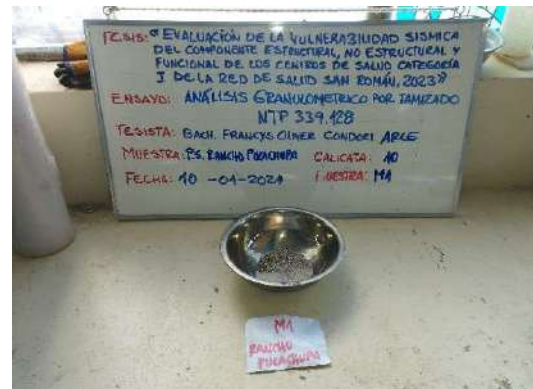 TESIS: "EVALUACIÓN DE LA VULNERABILIDAD SISMICA
DEL COMPONENTE ESTRUCTURAL, NO ESTRUCTURAL Y
FUNCIONAL DE LOS CENTROS DE SALUD CATEGORÍA
I DE LA RED DE SALUD SAN ROMÁN, 2023"
ENSAYO: ANÁLISIS GRANULOMETRICO POR TAMIZADO
NTP 339.128
TESISTA: BACH. FRANCYS OLIVER CONDORI ARCE
MUESTRA: P.S. RANCHO PUCACHUPA CALICATA: 10
FECHA: 10 -01-2024 MUESTRA: M1
M1
RANCHO
PUCACHUPA